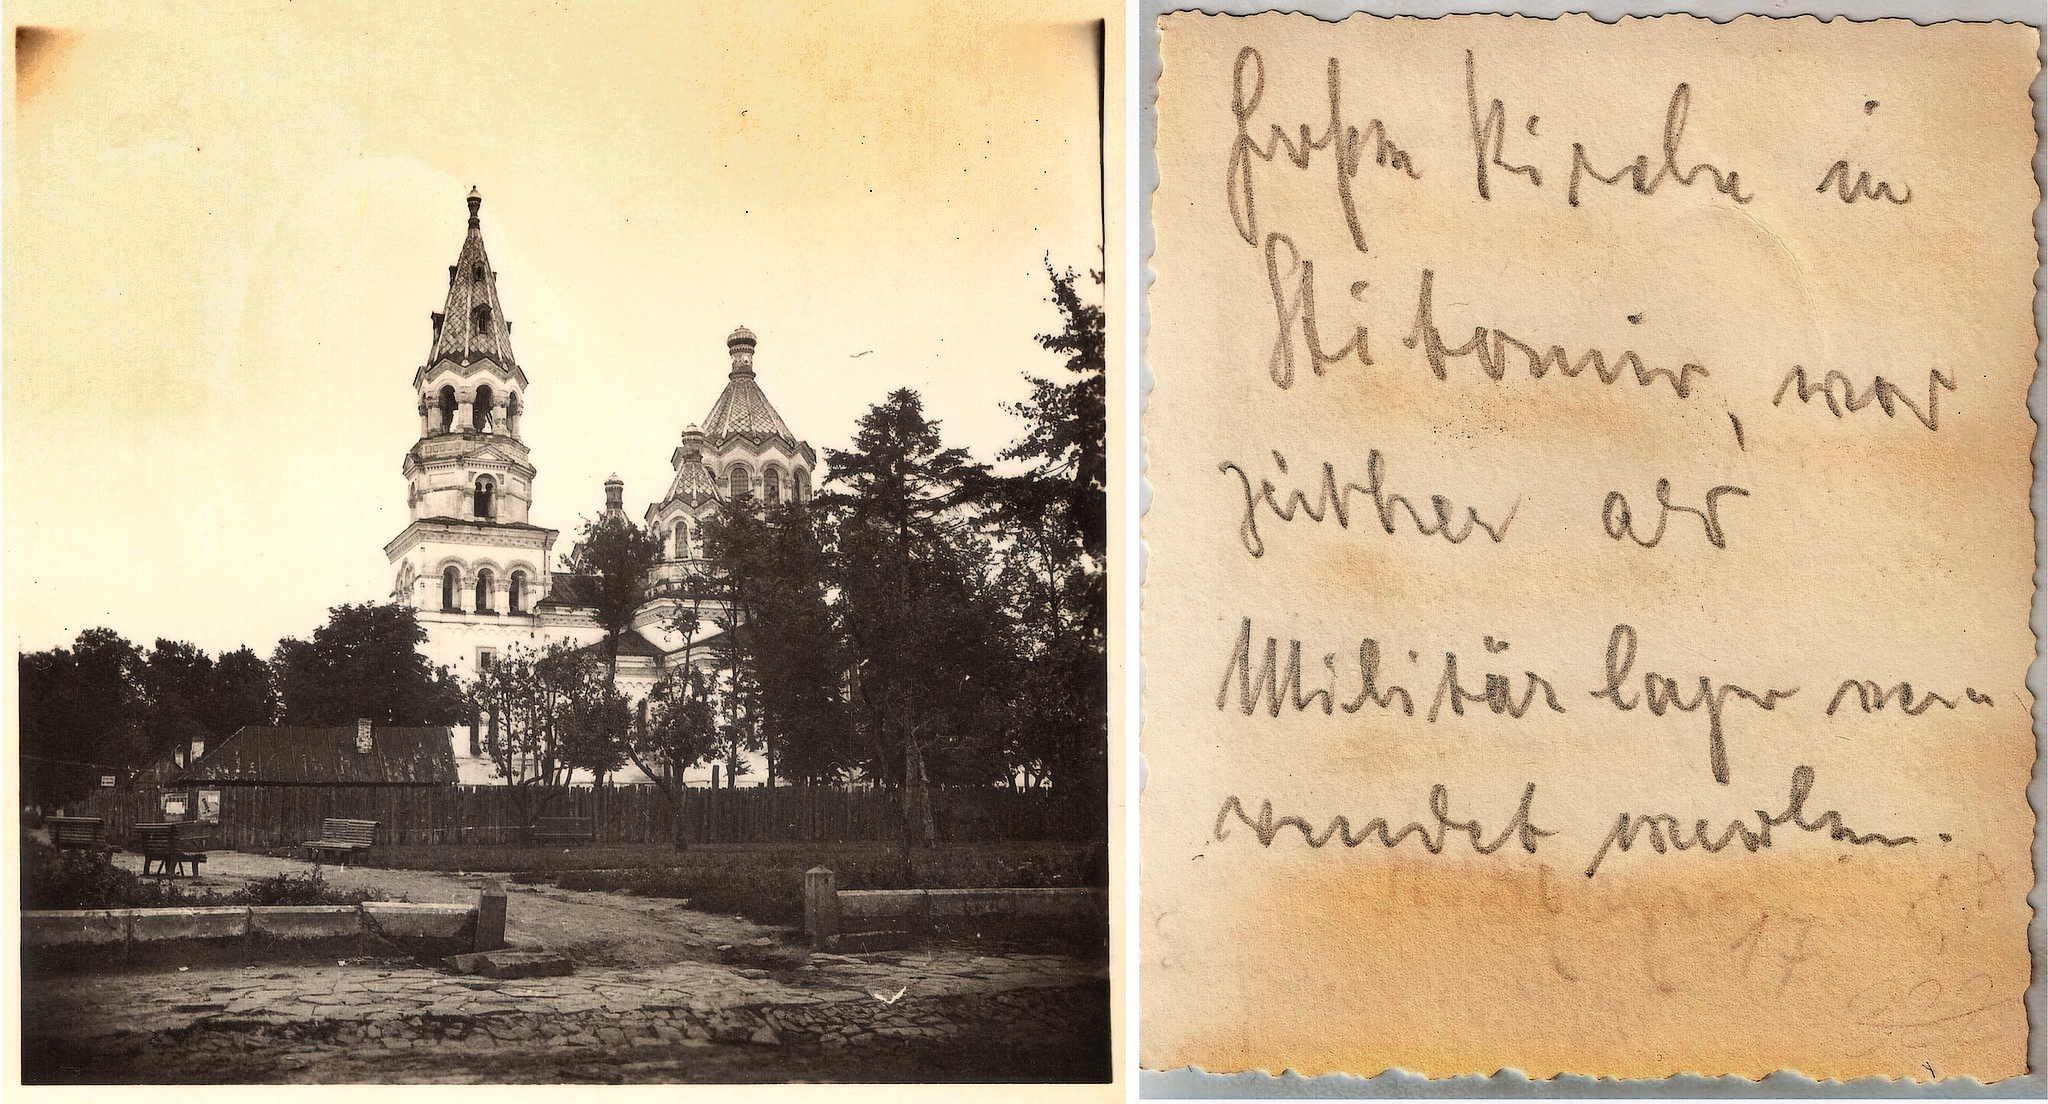 Große Kirche in
Stitomir, war
zeither als
Militärlager ver-
wendet worden.
17